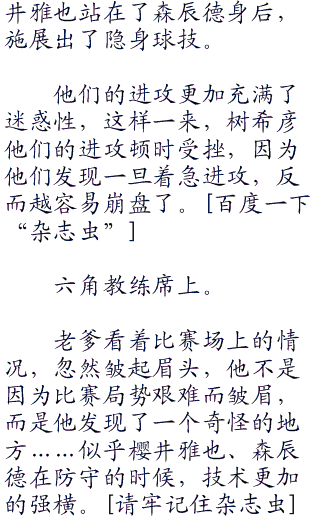 井雅也站在了森辰德身后，
施展出了隐身球技。
他们的进攻更加充满了
迷惑性，这样一来，树希彦
他们的进攻顿时受挫，因为
他们发现一旦着急进攻，反
而越容易崩盘了。[百度一下
“杂志虫”]
六角教练席上。
老爹看着比赛场上的情
况，忽然皱起眉头，他不是
因为比赛局势艰难而皱眉，
而是他发现了一个奇怪的地
方……似乎樱井雅也、森辰
德在防守的时候，技术更加
的强横。[请牢记住杂志虫]